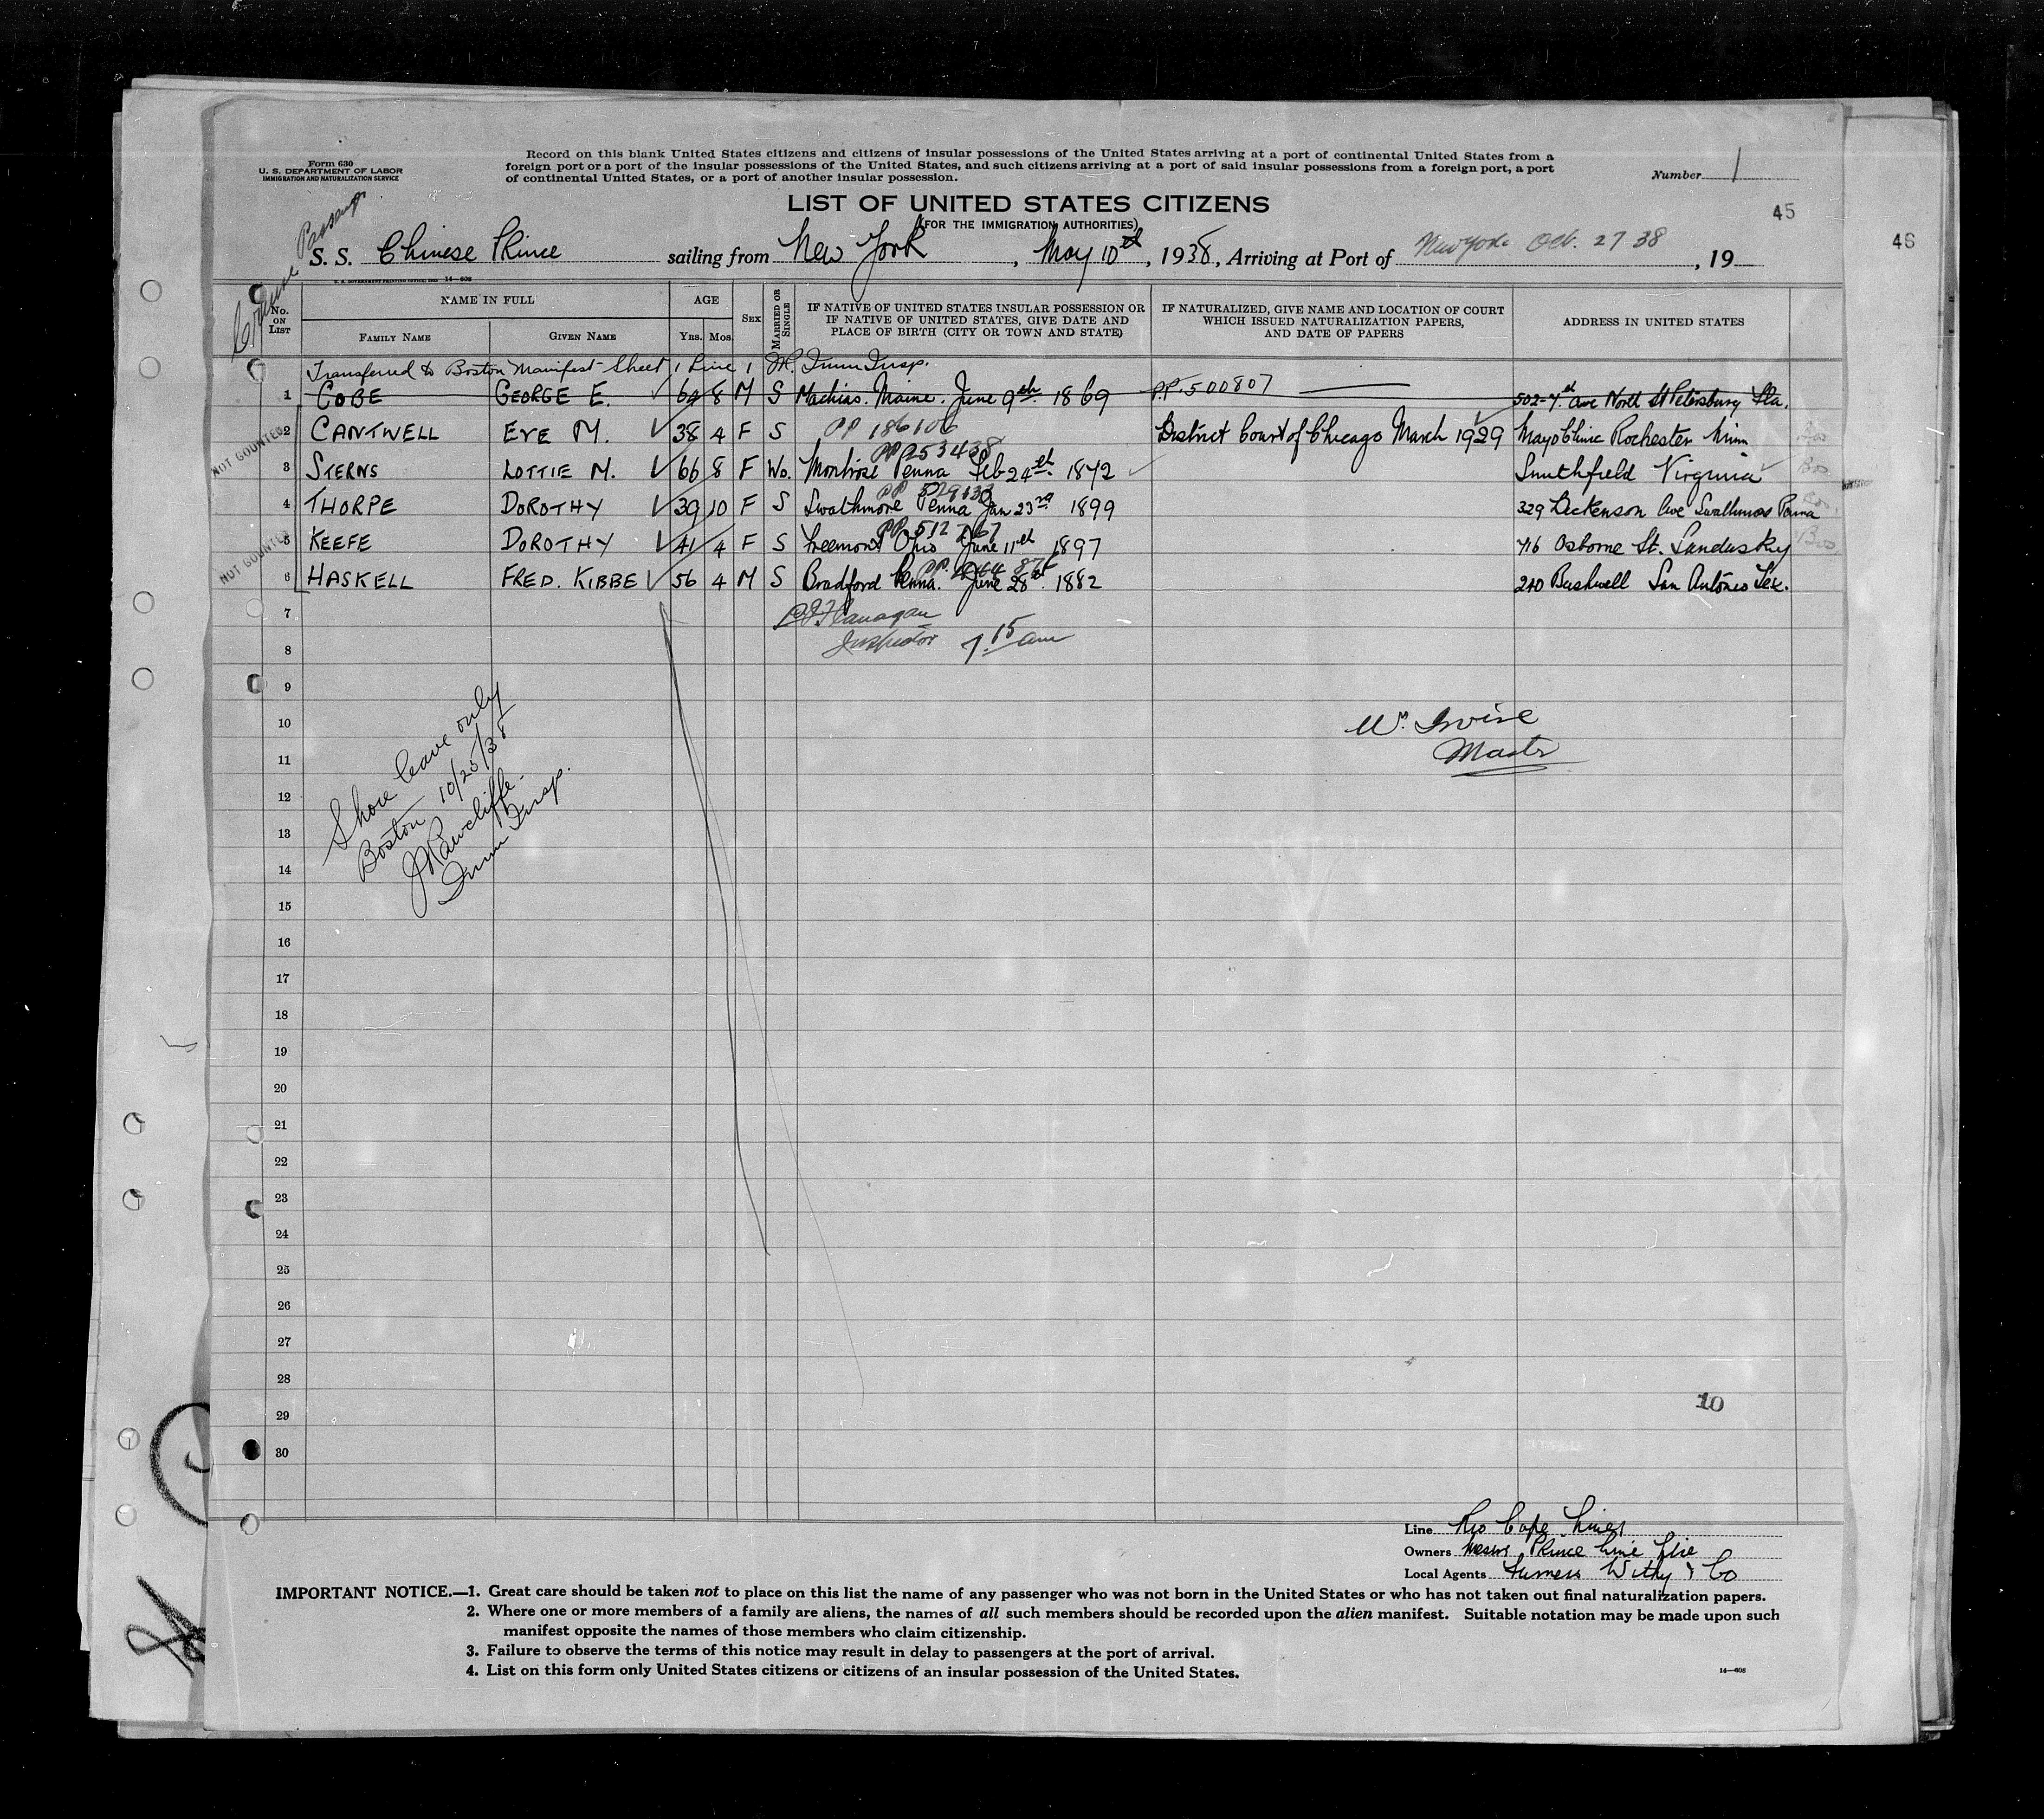 Form 630
U. S. DEPARTMENT OF LABOR
IMMIGRATION AND NATURALIZATION SERVICE
Record on this blank United States citizens and citizens of insular possessions of the United States arriving at a port of continental United States from a
foreign port or a port of the insular possessions of the United States, and such citizens arriving at a port of said insular possessions from a foreign port, a port
of continental United States, or a port of another insular possession.
Number 1
LIST OF UNITED STATES CITIZENS
(FOR THE IMMIGRATION AUTHORITIES)
45
46
Cruise Passengers
S. S. Chinese Prince sailing from New York, May 10th, 1938, Arriving at Port of New York Oct. 27 38, 19
U. S. GOVERNMENT PRINTING OFFICE: 14—608
No. on List
NAME IN FULL
FAMILY NAME
GIVEN NAME
AGE
Yrs.
Mos.
SEX
MARRIED OR SINGLE
IF NATIVE OF UNITED STATES INSULAR POSSESSION OR IF NATIVE OF UNITED STATES, GIVE DATE AND PLACE OF BIRTH (CITY OR TOWN AND STATE)
IF NATURALIZED, GIVE NAME AND LOCATION OF COURT WHICH ISSUED NATURALIZATION PAPERS, AND DATE OF PAPERS
ADDRESS IN UNITED STATES
Transferred to Boston Manifest Sheet 1 Line 1 Imm Insp.
1 COBE GEORGE E. 69 8 M S Machias. Maine. June 9th 1869 P.P. 500807 502-7th Ave North St Petersburg Fla.
2 CANTWELL EVE M. 38 4 F S PP 186106 District Court of Chicago March 1929 Mayo Clinic Rochester Minn
NOT COUNTED
3 STERNS LOTTIE M. 66 8 F Wo. PP 253438 Montrose Penna Feb 24th 1872 Smithfield Virginia
4 THORPE DOROTHY 39 10 F S PP Swathmore Penna Jan 23rd 1899 329 Dickenson Ave Swathmore Penna
5 KEEFE DOROTHY 41 4 F S PP 512767 Freemont Ohio June 11th 1897 716 Osborne St. Sandusky
NOT COUNTED
6 HASKELL FRED. KIBBE 56 4 M S PP Bradford Penna. June 28th 1882 210 Bushwell San Antonio Tex.
7 Flanagan
8 Inspector 7 15 am
9
10 Wm. Irvine
11 Master
12
13
14
Shore leave only
Boston 10/25/38
J R Rawcliffe
Imm Insp.
15
16
17
18
19
20
21
22
23
24
25
26
27
28
29
10
30
Line Rio Cape Line
Owners Messrs Prince Line
Local Agents Furness Withy & Co
IMPORTANT NOTICE.—1. Great care should be taken not to place on this list the name of any passenger who was not born in the United States or who has not taken out final naturalization papers.
2. Where one or more members of a family are aliens, the names of all such members should be recorded upon the alien manifest. Suitable notation may be made upon such
manifest opposite the names of those members who claim citizenship.
3. Failure to observe the terms of this notice may result in delay to passengers at the port of arrival.
4. List on this form only United States citizens or citizens of an insular possession of the United States.
14—608